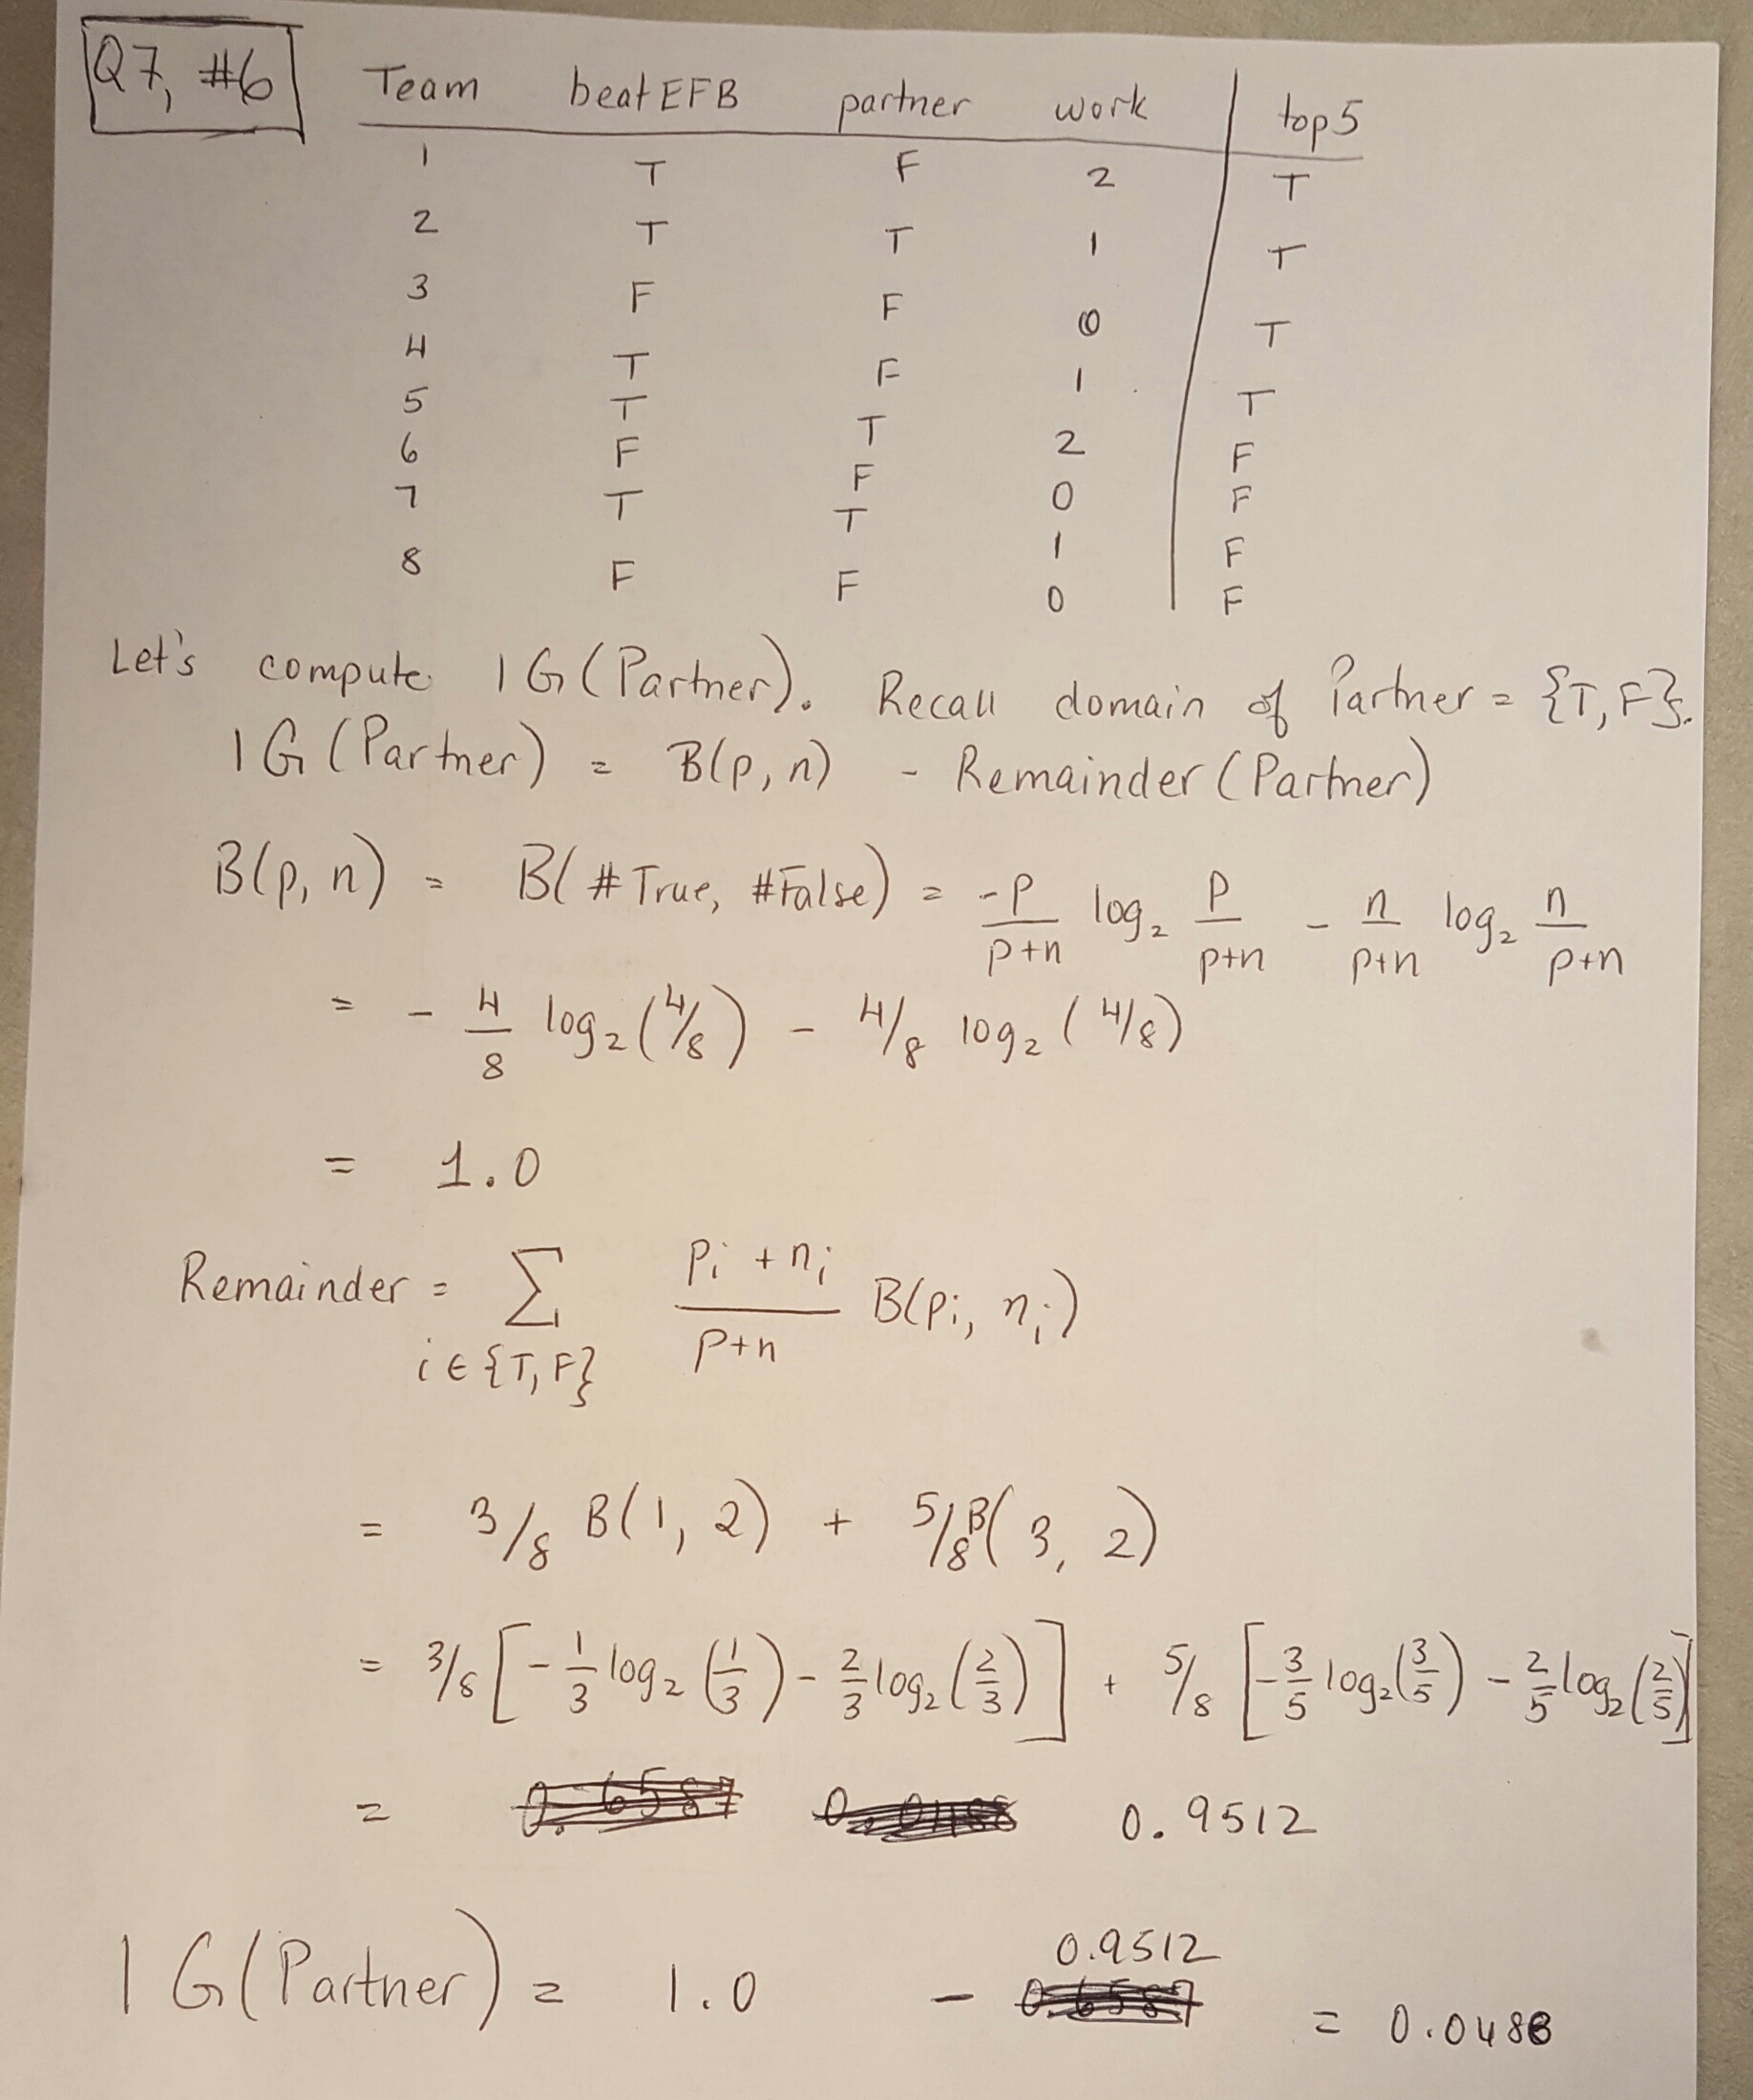 Q7, #6
Team beatEFB partner work top5
1 T F 2 T
2 T T 1 T
3 F F 0 T
4 T F 1 T
5 T T 2 F
6 F F 0 F
7 T T 1 F
8 F F 0 F
Let's compute IG(Partner). Recall domain of Partner = {T,F}.
IG(Partner) = B(p, n) - Remainder(Partner)
B(p, n) = B(#True, #False) = -p/(p+n) log₂ p/(p+n) - n/(p+n) log₂ n/(p+n)
= - 4/8 log₂(4/8) - 4/8 log₂(4/8)
= 1.0
Remainder = Σ i∈{T,F} (pᵢ+nᵢ)/(p+n) B(pᵢ, nᵢ)
= 3/8 B(1, 2) + 5/8 B(3, 2)
= 3/8 [-1/3 log₂(1/3) - 2/3 log₂(2/3)] + 5/8 [-3/5 log₂(3/5) - 2/5 log₂(2/5)]
= 0.9512
IG(Partner) = 1.0 - 0.9512 = 0.0488